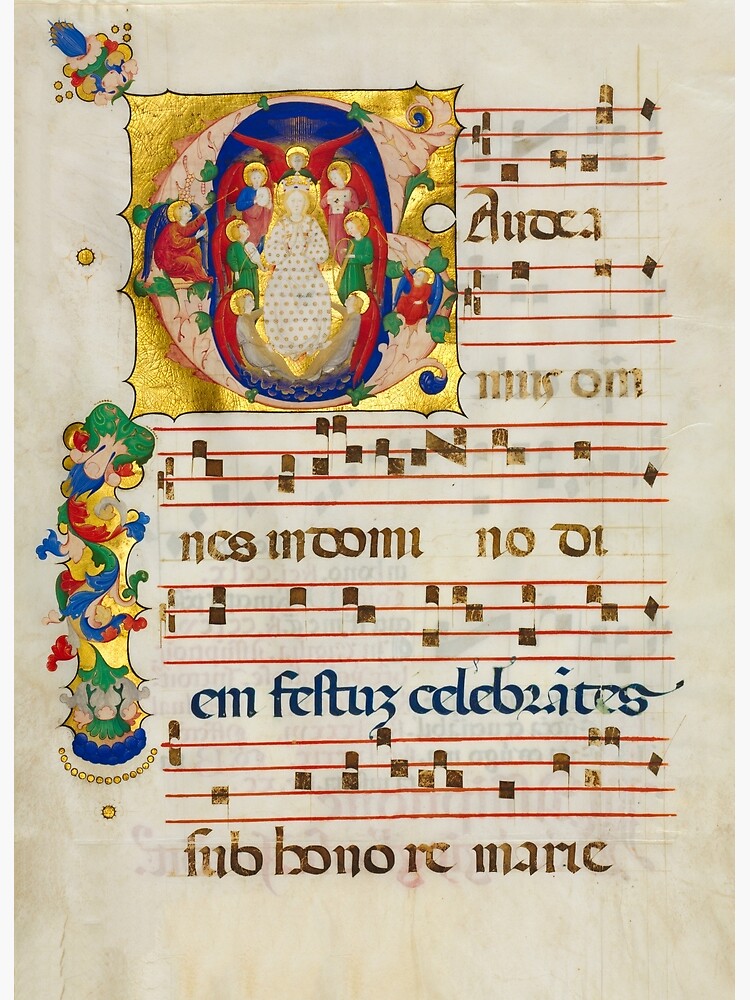 GAudea
mus om
nes in domi no di
em festuʒ celebrātes
sub hono re marie